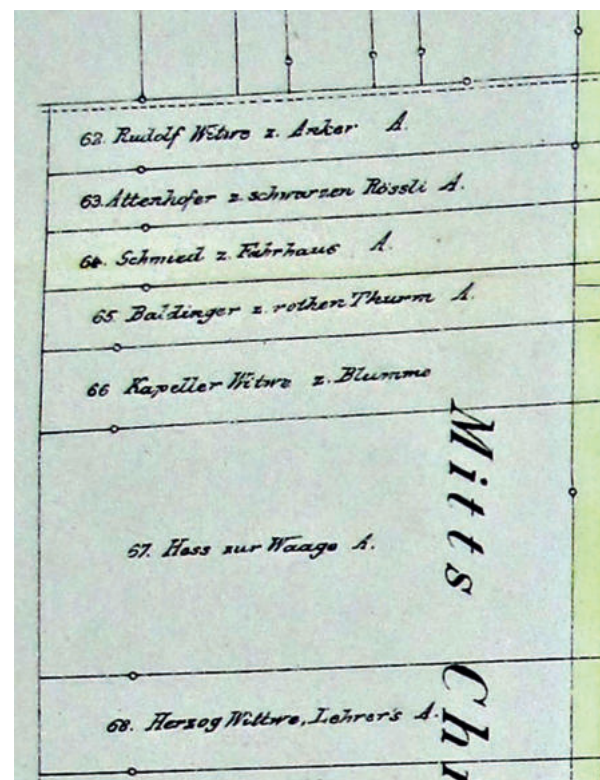 62. Rudolf Witwe z. Anker A.
63. Attenhofer z. schwarzen Rössli A.
64. Schmied z. Fahrhaus A.
65. Baldinger z. rothen Thurm A.
66 Kapeller Witwe z. Blumme
67. Hess zur Waage A.
68. Herzog Wittwe, Lehrer's A.
Mitts Ch